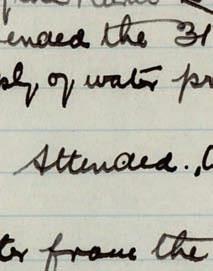 ended the 31
ply of water pr
Attended.,
ter from the